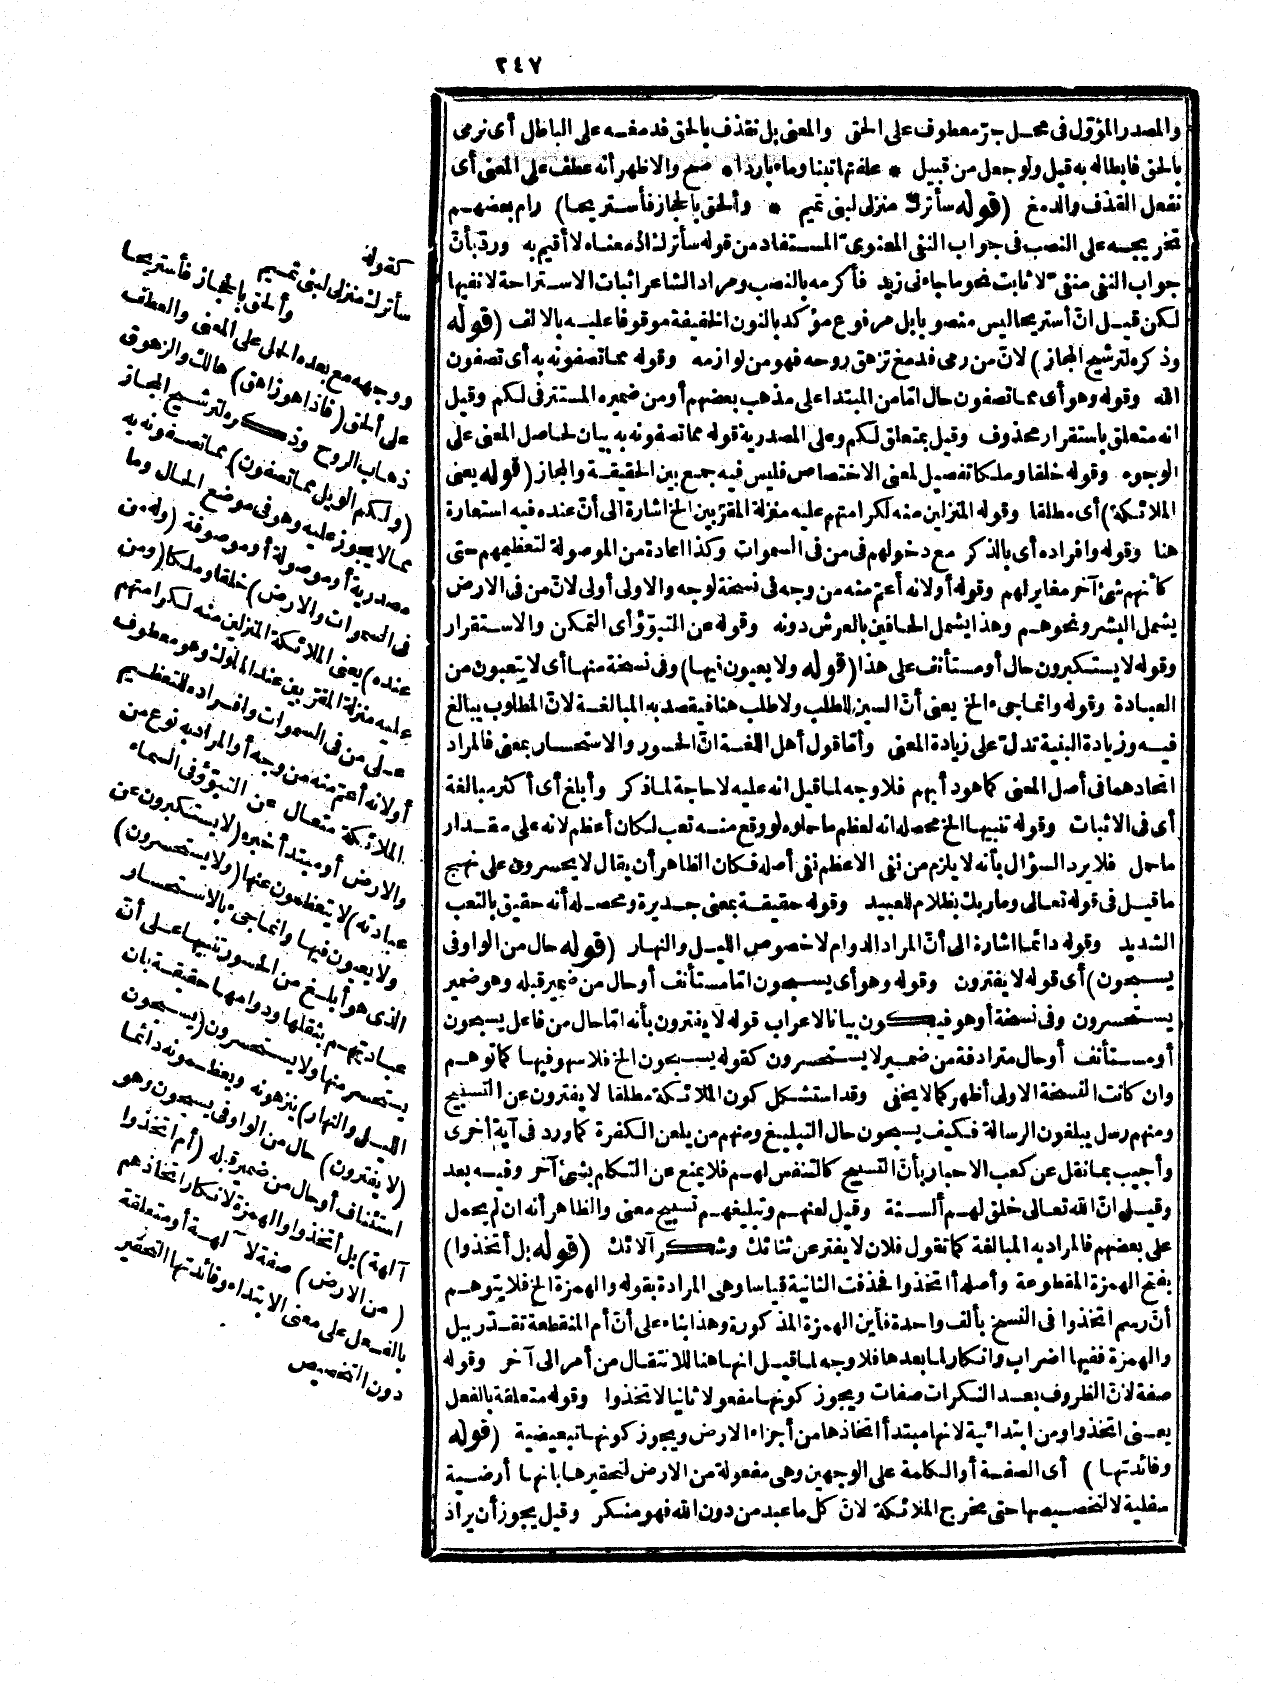 ٢٤٧
والمصدر المؤوّل فى محل جرّ معطوف على الحق والمعنى بل نقذف بالحق فدمغه على الباطل أى نرمى
بالحق فابطاله به قيل ولو جعل من قبيل * علفتها تبنا وماء باردا * صح والاظهر أنه عطف على المعنى أى
نفعل القذف والدمغ (قوله سأترك منزلى لبنى تميم * وألحق بالحجاز فأستريحا) رام بعضهم
تخريجه على النصب فى جواب النفى المعنوىّ المستفاد من قوله سأترك اذ معناه لا أقيم به وردّ بأنّ
جواب النفى منفىّ لا ثابت نحو ما جاءنى زيد فأكرمه بالنصب ومراد الشاعر اثبات الاستراحة لا نفيها
لكن قيل انّ أستريحا ليس منصوبا بل مرفوع مؤكد بالنون الخفيفة موقوفا عليه بالالف (قوله
وذكره لترشيح المجاز) لانّ من رمى فدمغ تزهق روحه فهو من لوازمه وقوله مما تصفونه به أى تصفون
الله وقوله وهو أى مما تصفون حال امّا من المبتدا على مذهب بعضهم أو من ضميره المستتر فى لكم وقيل
انه متعلق باستقرار محذوف وقيل بمتعلق لكم وعلى المصدرية قوله مما تصفونه به بيان لحاصل المعنى على
الوجوه وقوله خلقا وملكا تفصيل لمعنى الاختصاص فليس فيه جمع بين الحقيقة والمجاز (قوله يعنى
الملائكة) أى مطلقا وقوله المنزلين منه لكرامتهم عليه منزلة المقرّبين الخ اشارة الى أنّ عنده فيه استعارة
هنا وقوله وافراده أى بالذكر مع دخولهم فى من فى السموات وكذا اعادة من الموصولة لتعظيمهم حتى
كأنهم شئ آخر مغاير لهم وقوله أو لانه أعمّ منه من وجه فى نسخة لوجه والاولى أولى لانّ من فى الارض
يشمل البشر ونحوهم وهذا يشمل الحافين بالعرش دونه وقوله عن التبوّؤ أى التمكن والاستقرار
وقوله لا يستكبرون حال أو مستأنف على هذا (قوله ولا يعيون فيها) وفى نسخة منها أى لا يتعبون من
العبادة وقوله وانما جىء الخ يعنى أنّ السين للطلب ولا طلب هنا فيقصد به المبالغة لانّ المطلوب يبالغ
فيه وزيادة البنية تدلّ على زيادة المعنى وأمّا قول أهل اللغة انّ الحسور والاستحسار بمعنى فالمراد
اتحادهما فى أصل المعنى كما هو دأبهم فلا وجه لما قيل انه عليه لا حاجة لما ذكر وأبلغ أى أكثر مبالغة
أى فى الاثبات وقوله تنبيها الخ محصله انه لعظم ما حملوه لو وقع منه تعب لكان أعظم لانه على مقدار
ما حمل فلا يرد السؤال بأنه لا يلزم من نفى الاعظم نفى أصله فكان الظاهر أن يقال لا يحسرون على نهج
ما قيل فى قوله تعالى وما ربك بظلام للعبيد وقوله حقيقة بمعنى جديرة ومحصله أنه حقيق بالتعب
الشديد وقوله دائما اشارة الى أنّ المراد الدوام لا خصوص الليل والنهار (قوله حال من الواو فى
يسبحون) أى قوله لا يفترون وقوله وهو أى يسبحون امّا مستأنف أو حال من ضمير قبله وهو ضمير
يستحسرون وفى نسخة أو هو فيكون بيانا لاعراب قوله لا يفترون بأنه امّا حال من فاعل يسبحون
أو مستأنف أو حال مترادفة من ضمير لا يستحسرون كقوله يسبحون الخ فلا سهو فيها كما توهم
وان كانت النسخة الاولى أظهر كما لا يخفى وقد استشكل كون الملائكة مطلقا لا يفترون عن التسبيح
ومنهم رسل يبلغون الرسالة فكيف يسبحون حال التبليغ ومنهم من يلعن الكفرة كما ورد فى آية أخرى
وأجيب بما نقل عن كعب الاحبار بأنّ التسبيح كالتنفس لهم فلا يمنع عن التكلم بشئ آخر وفيه بعد
وقيل انّ الله تعالى خلق لهم ألسنة وقيل لعنهم وتبليغهم تسبيح معنى والظاهر أنه ان لم يحمل
على بعضهم فالمراد به المبالغة كما تقول فلان لا يفتر عن ثنائك وشكر آلائك (قوله بل أتخذوا)
بفتح الهمزة المقطوعة وأصله أاتخذوا فحذفت الثانية قياسا وهى المرادة بقوله والهمزة الخ فلا يتوهم
أنّ رسم اتخذوا فى النسخ بألف واحدة فأين الهمزة المذكورة وهذا بناء على أنّ أم المنقطعة تقدّر ببل
والهمزة ففيها اضراب وانكار لما بعدها فلا وجه لما قيل انها هنا للانتقال من أمر الى آخر وقوله
صفة لانّ الظروف بعد النكرات صفات ويجوز كونها مفعولا ثانيا لاتخذوا وقوله متعلقة بالفعل
يعنى اتخذوا ومن ابتدائية لانها مبتدأ اتخاذها من أجزاء الارض ويجوز كونها تبعيضية (قوله
وفائدتها) أى الصفة أو الكلمة على الوجهين وهى مفعولة من الارض لتحقيرها بانها أرضية
سفلية لا لتخصيصها حتى تخرج الملائكة لانّ كل ما عبد من دون الله فهو منكر وقيل يجوز أن يراد
كقوله
سأترك منزلى لبنى تميم
وألحق بالحجاز فأستريحا
ووجهه مع بعده الحمل على المعنى والعطف
على ألحق (فاذا هو زاهق) هالك والزهوق
ذهاب الروح وذكره لترشيح المجاز
(ولكم الويل مما تصفون) مما تصفونه به
مما لا يجوز عليه وهو فى موضع الحال وما
مصدرية أو موصولة أو موصوفة (وله من
فى السموات والارض) خلقا وملكا (ومن
عنده) يعنى الملائكة المنزلين منه لكرامتهم
عليه منزلة المقرّبين عند الملوك وهو معطوف
على من فى السموات وافراده للتعظيم
أو لانه أعمّ منه من وجه أو المراد به نوع من
الملائكة متعال عن التبوّؤ فى السماء
والارض أو مبتدأ خبره (لا يستكبرون عن
عبادته) لا يتعظمون عنها (ولا يستحسرون)
ولا يعيون فيها وانما جىء بالاستحسار
الذى هو أبلغ من الحسور تنبيها على أنّ
عبادتهم بثقلها ودوامها حقيقة بان
يستحسر منها ولا يستحسرون (يسبحون
الليل والنهار) ينزهونه ويعظمونه دائما
(لا يفترون) حال من الواو فى يسبحون وهو
استئناف أو حال من ضمير قبله (أم اتخذوا
آلهة) بل أتخذوا والهمزة لانكار اتخاذهم
(من الارض) صفة لآلهة أو متعلقة
بالفعل على معنى الابتداء وفائدتها التحقير
دون التخصيص